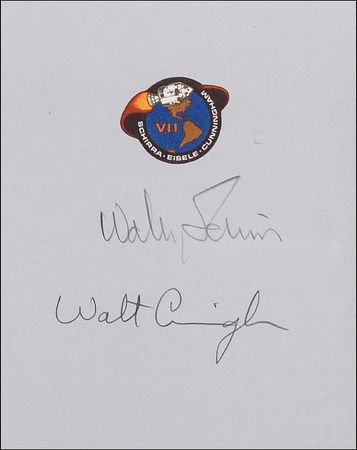 VII
SCHIRRA · EISELE · CUNNINGHAM
Wally Schirra
Walt Cunningham